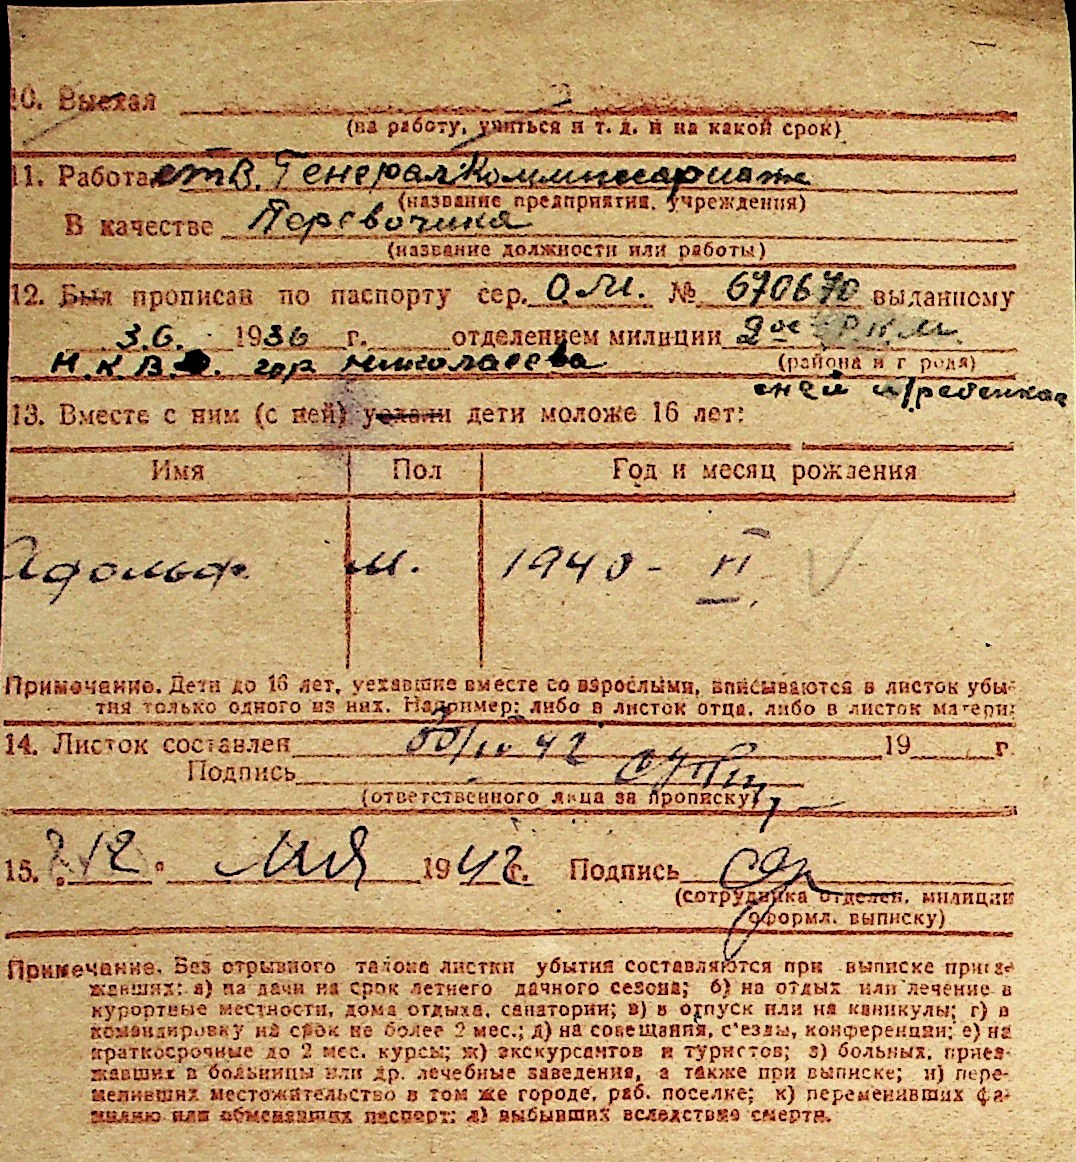 10. Выехал
(на работу, учиться и т. д. и на какой срок)
11. Работает в. Генерал Коммиссариате
(название предприятия, учреждения)
В качестве Перевочика
(название должности или работы)
12. Был прописан по паспорту сер. О.М. № 670670 выданному
3.6. 1936 г. отделением милиции 2ое Р.К.М.
(района и г рода)
Н.К.В.Д. гор. Николаева
с ней 1/ребенка
13. Вместе с ним (с ней) уехали дети моложе 16 лет:
Имя Пол Год и месяц рождения
Адольф м. 1940 - II
Примечание. Дети до 16 лет, уехавшие вместе со взрослыми, вписываются в листок убы-
тия только одного из них. Например: либо в листок отца, либо в листок матери:
14. Листок составлен 42 19 г.
Подпись
(ответственного лица за прописку)
15. 12 мая 1942 г. Подпись
(сотрудника отделен. милиции
оформл. выписку)
Примечание. Без отрывного талона листки убытия составляются при выписке приез-
жавших: а) на дачи на срок летнего дачного сезона; б) на отдых или лечение в
курортные местности, дома отдыха, санатории; в) в отпуск или на каникулы; г) в
командировку на срок не более 2 мес.; д) на совещания, с'езды, конференции; е) на
краткосрочные до 2 мес. курсы; ж) экскурсантов и туристов; з) больных, приез-
жавших в больницы или др. лечебные заведения, а также при выписке; и) пере-
менивших местожительство в том же городе, раб. поселке; к) переменивших фа-
милию или обменявших паспорт; л) выбывших вследствие смерти.